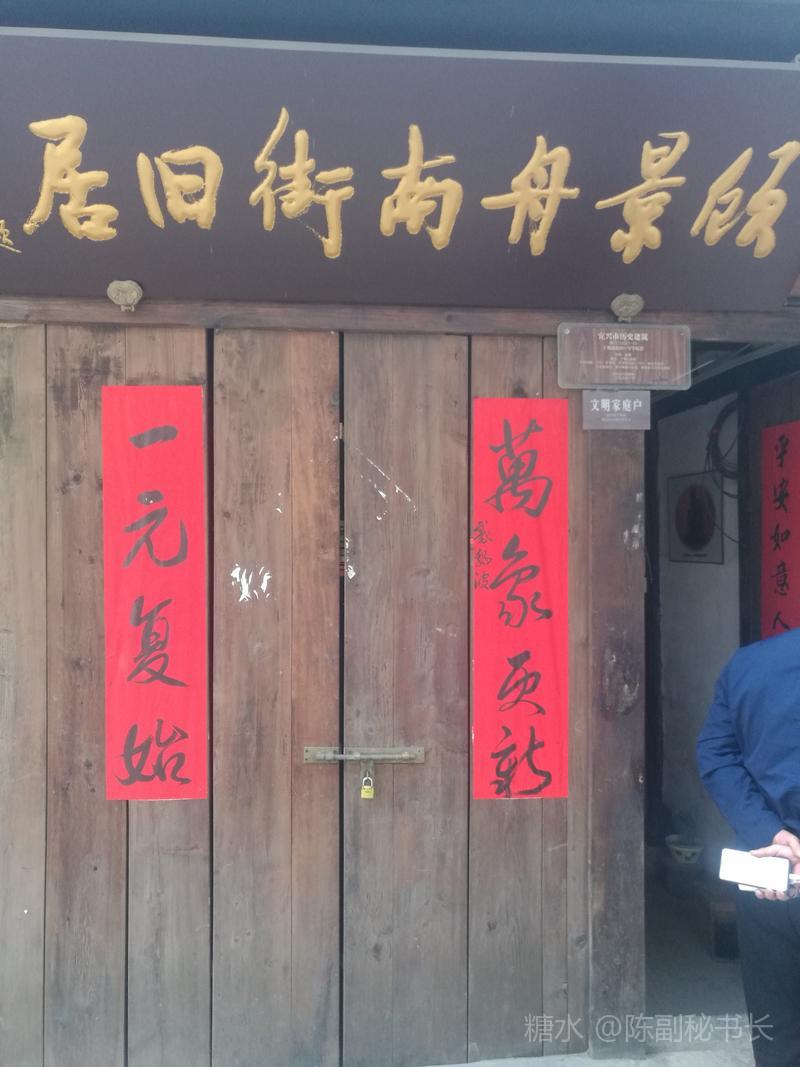 顾景舟南街旧居
宜兴市历史建筑
文明家庭户
萬象更新
一元复始
平安如意人
糖水 @陈副秘书长